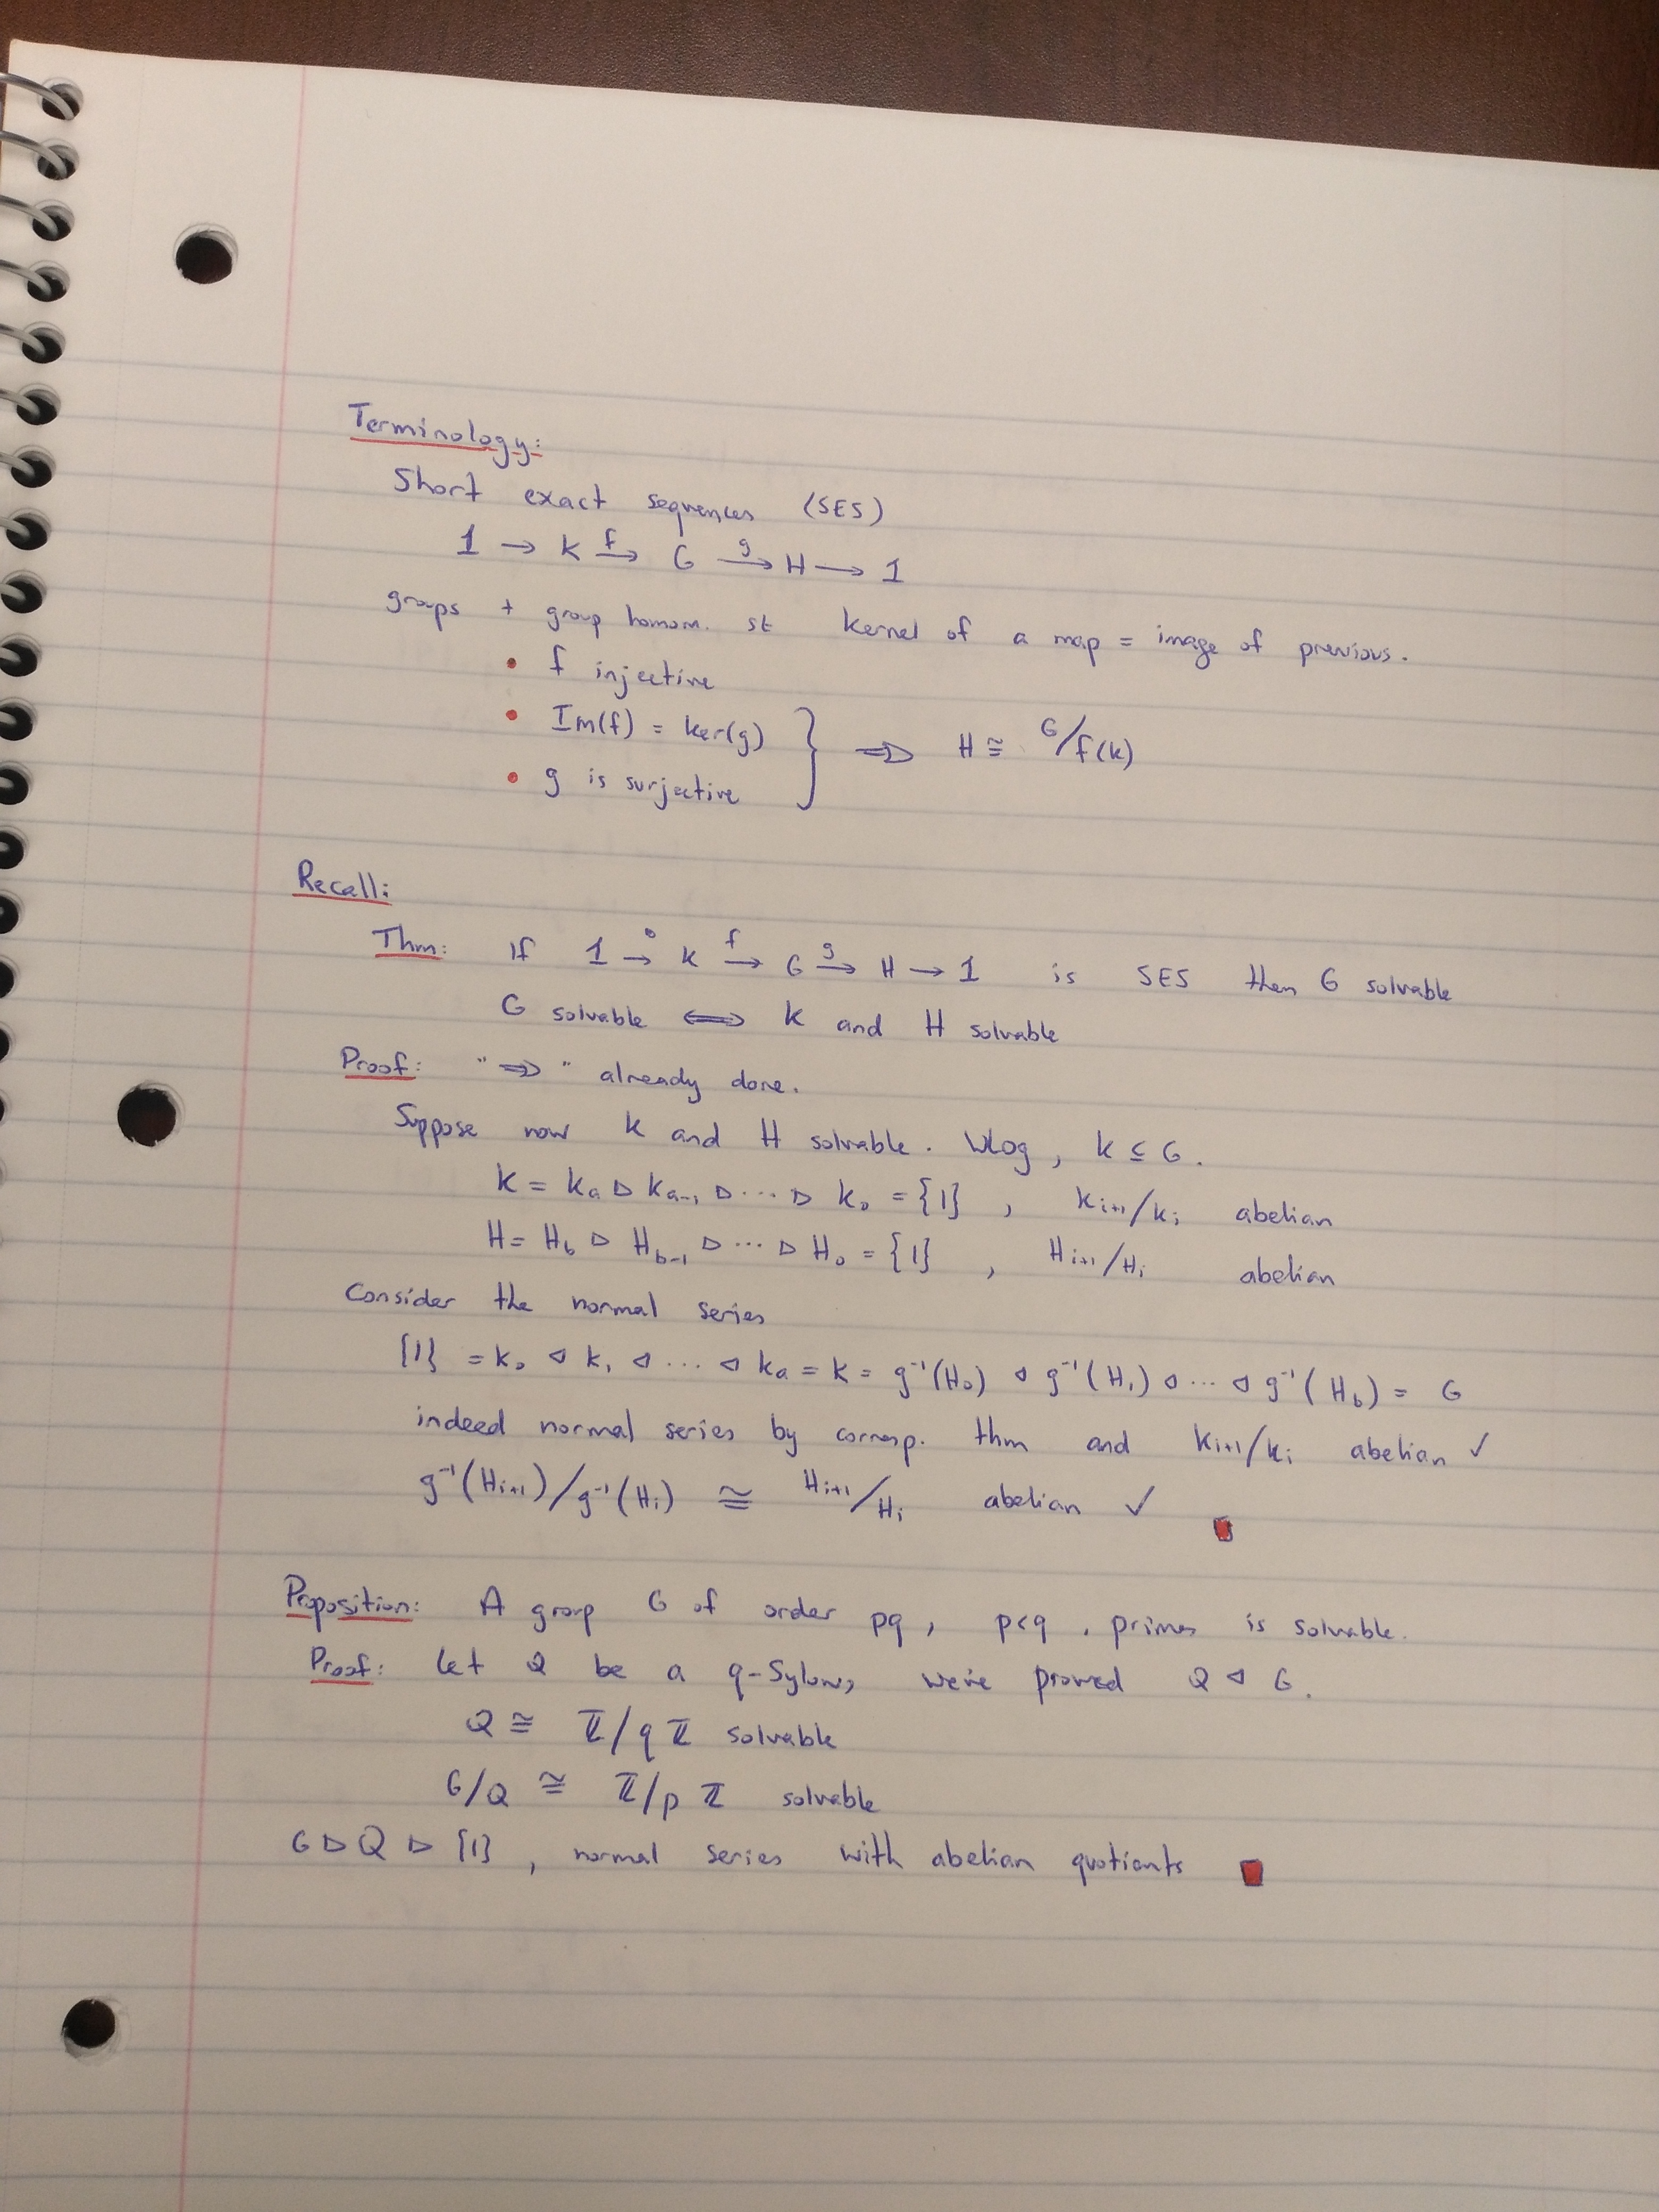 Terminology:
Short exact sequences (SES)
1 → K →^f G →^g H → 1
groups + group homom. st kernel of a map = image of previous.
• f injective
• Im(f) = ker(g) } ⇒ H ≅ G/f(K)
• g is surjective
Recall:
Thm: If 1 → K →^f G →^g H → 1 is SES then G solvable
G solvable ⟺ K and H solvable
Proof: "⇒" already done.
Suppose now K and H solvable. Wlog, K ≤ G.
K = K_a ▷ K_{a-1} ▷ ... ▷ K_0 = {1} , K_{i+1}/K_i abelian
H = H_b ▷ H_{b-1} ▷ ... ▷ H_0 = {1} , H_{i+1}/H_i abelian
Consider the normal series
{1} = K_0 ◁ K_1 ◁ ... ◁ K_a = K = g⁻¹(H_0) ◁ g⁻¹(H_1) ◁ ... ◁ g⁻¹(H_b) = G
indeed normal series by corresp. thm and K_{i+1}/K_i abelian ✓
g⁻¹(H_{i+1})/g⁻¹(H_i) ≅ H_{i+1}/H_i abelian ✓
Proposition: A group G of order pq, p<q, primes is solvable.
Proof: Let Q be a q-Sylow, we've proved Q ◁ G.
Q ≅ ℤ/qℤ solvable
G/Q ≅ ℤ/pℤ solvable
G ▷ Q ▷ {1}, normal series with abelian quotients